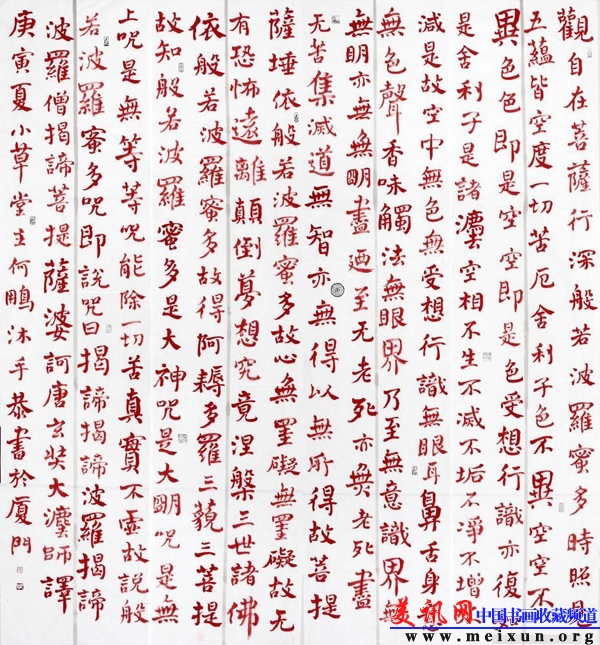 觀自在菩薩行深般若波羅蜜多時照見
五蘊皆空度一切苦厄舍利子色不異空空不
異色色即是空空即是色受想行識亦復如
是舍利子是諸灋空相不生不滅不垢不淨不增
減是故空中無色無受想行識無眼耳鼻舌身
無色聲香味觸法無眼界乃至無意識界無
無明亦無無明盡廼至无老死亦無老死盡
无苦集滅道無智亦無得以無所得故菩提
薩埵依般若波羅蜜多故心無罣礙無罣礙故无
有恐怖遠離顛倒夢想究竟涅槃三世諸佛
依般若波羅蜜多故得阿耨多羅三藐三菩提
故知般若波羅蜜多是大神咒是大明咒是無
上咒是無等等咒能除一切苦真實不虛故說般
若波羅蜜多咒即說咒曰揭諦揭諦波羅揭諦
波羅僧揭諦菩提薩婆訶唐玄奘大灋師譯
庚寅夏小草堂主何鵬沐手恭書於厦門
美讯网 中国书画收藏频道
www.meixun.org